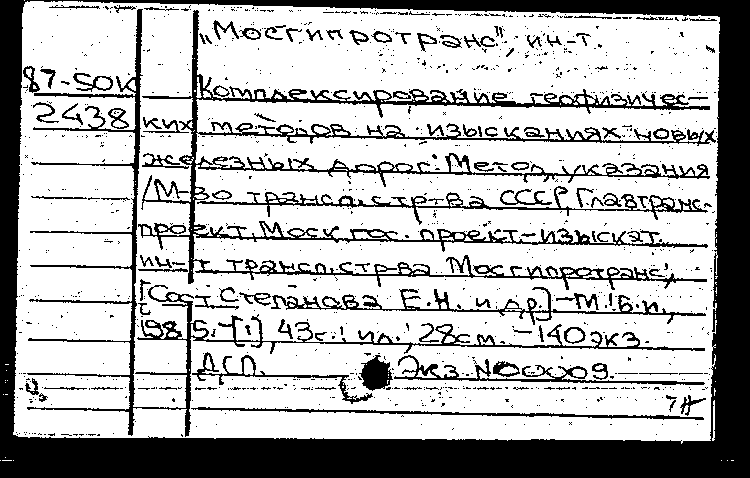 „Мосгипротранс", ин-т.
87-5ОК Комплексирование геофизичес-
2438 ких методов на изысканиях новых
железных дорог: Метод. указания
/М-во трансп. стр-ва СССР, Главтранс-
проект, Моск. гос. проект.-изыскат.
ин-т трансп. стр-ва Мосгипротранс;
[Сост. Степанова Е.Н. и др.]-М.: Б.и.,
1985.-[1], 43с.: ил.; 28см. -140 экз.
ДСП. Экз. N00009.